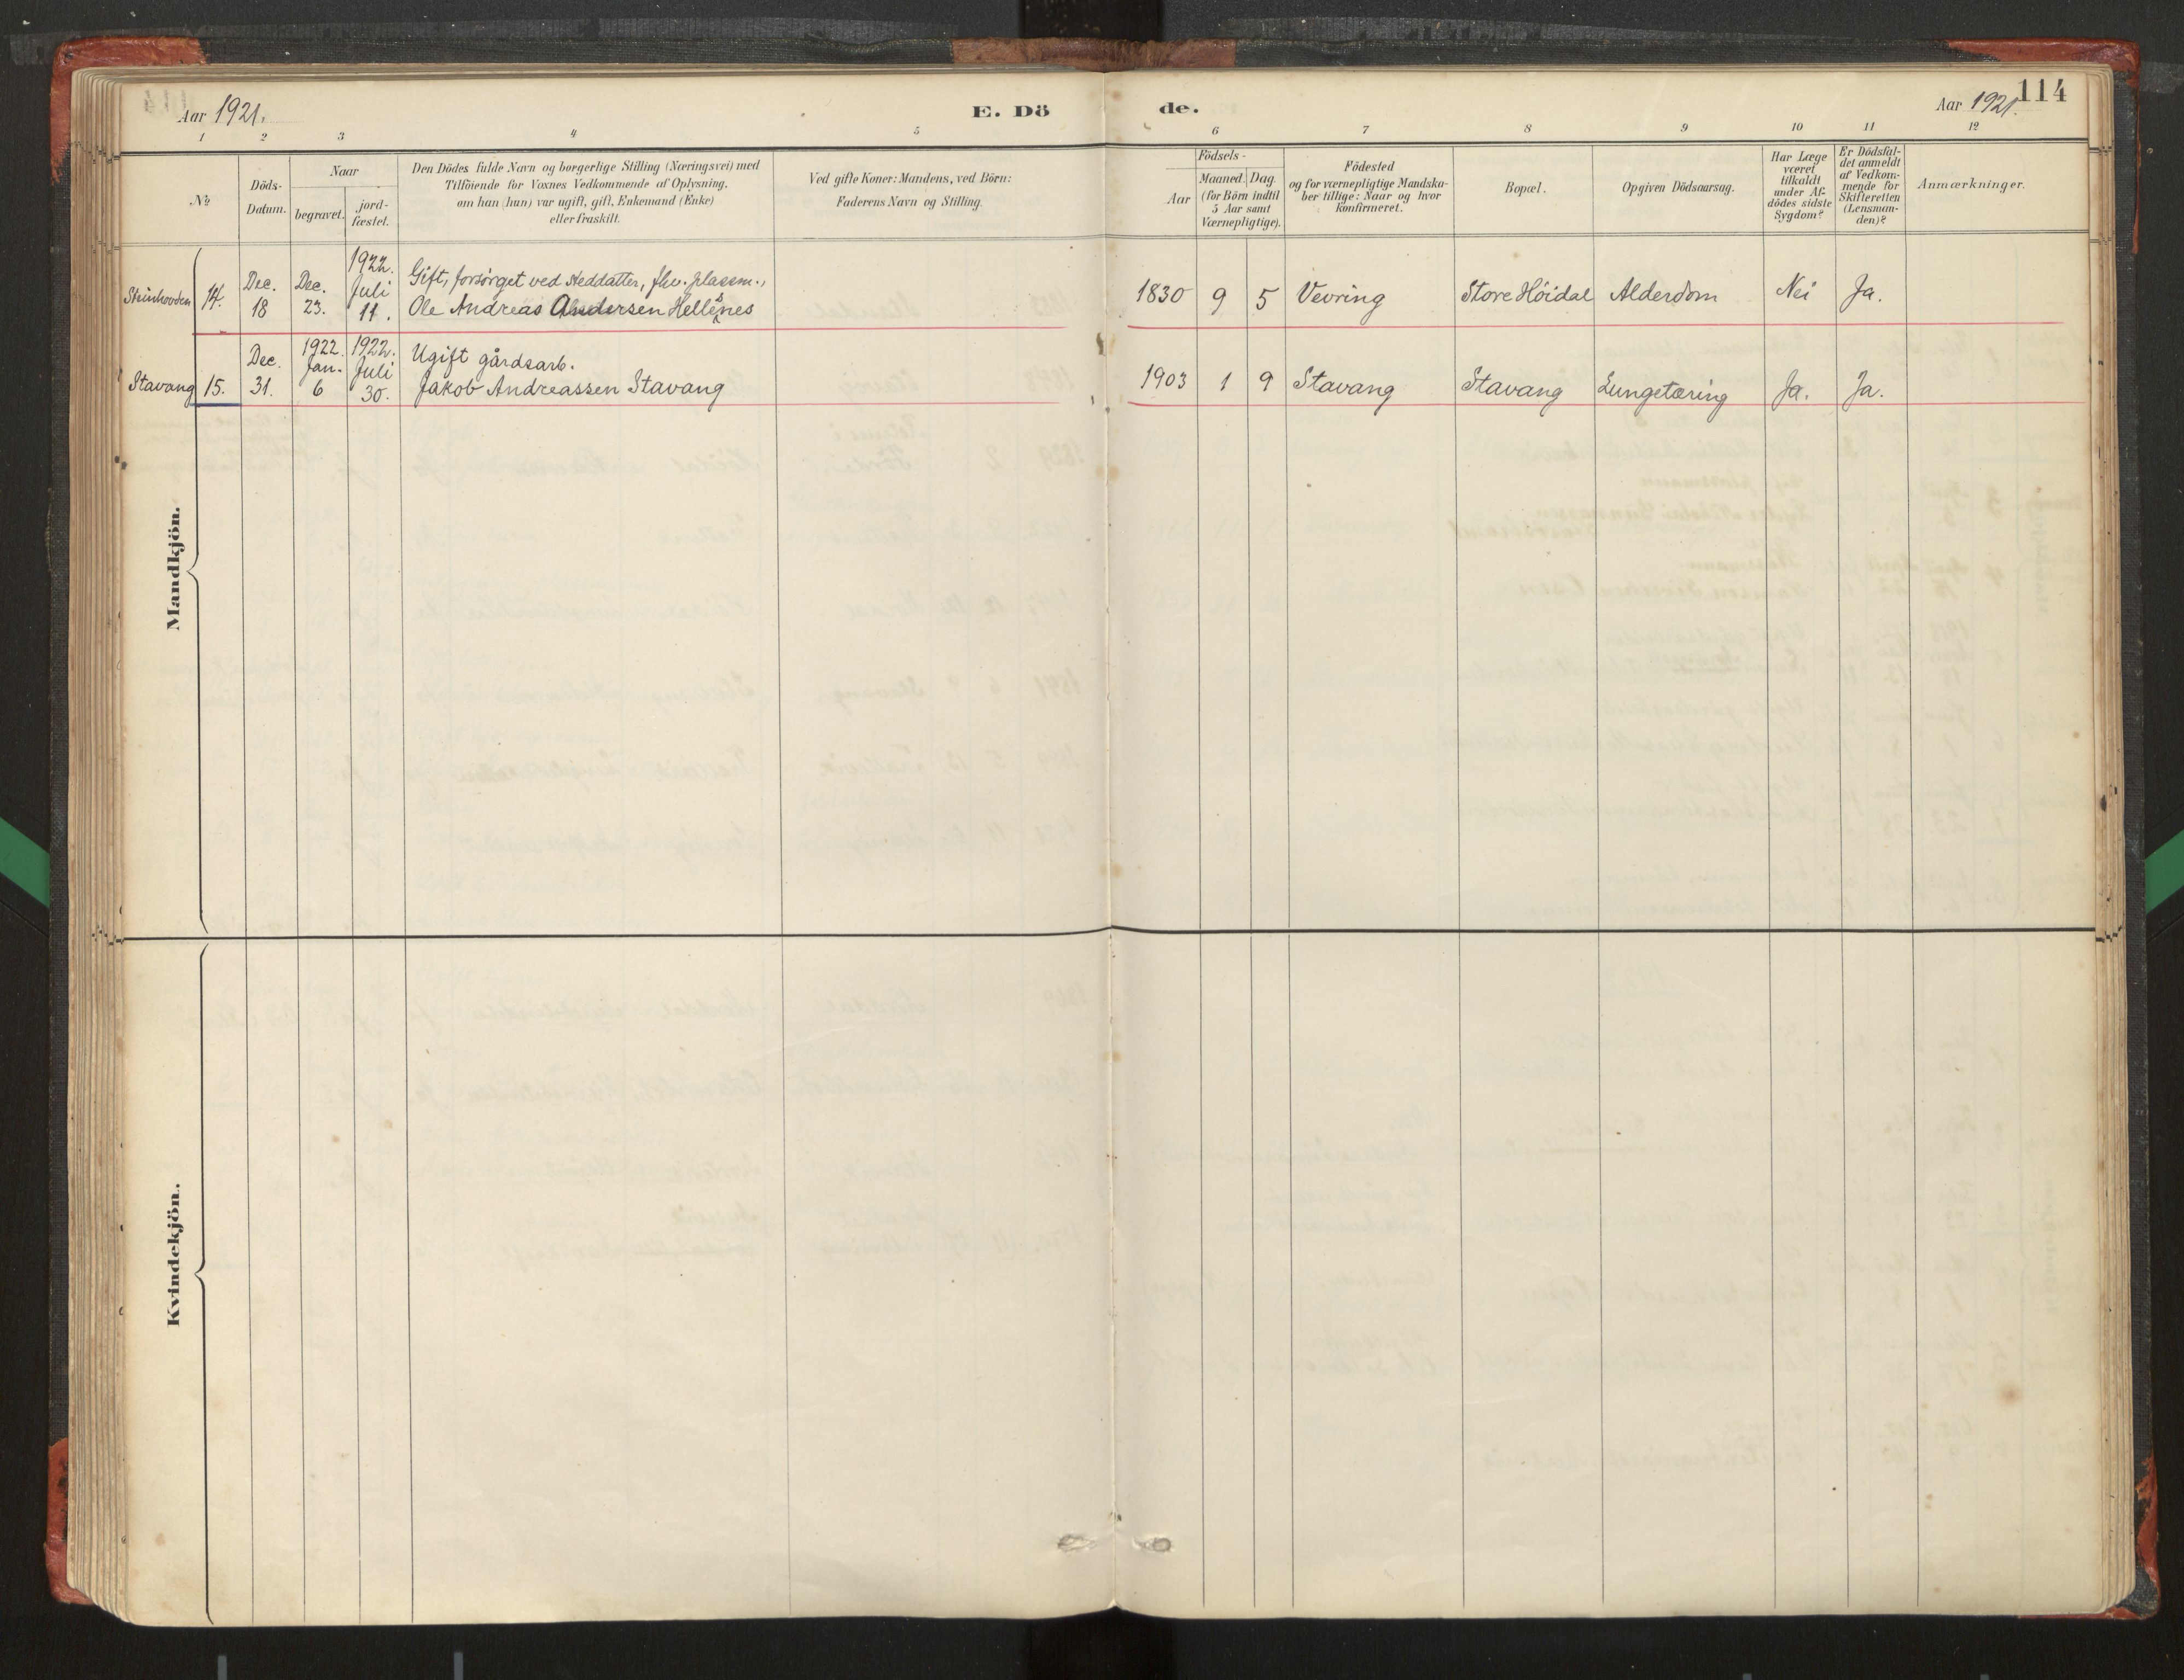 Aar 1921.
E. Dö
de.
Aar 1921.
114
1 2 3 4 5 6 7 8 9 10 11 12
No
Döds-
Datum.
Naar
begravet.
jord-
fæstet.
Den Dödes fulde Navn og borgerlige Stilling (Næringsvei) med
Tilföiende for Voxnes Vedkommende af Oplysning,
om han (hun) var ugift, gift, Enkemand (Enke)
eller fraskilt.
Ved gifte Koner: Mandens, ved Börn:
Faderens Navn og Stilling.
Födsels-
Aar
Maaned. Dag.
(for Börn indtil
5 Aar samt
Værnepligtige).
Födested
og for værnepligtige Mandska-
ber tillige: Naar og hvor
konfirmeret.
Bopæl.
Opgiven Dödsaarsag.
Har Læge
været
tilkaldt
under Af-
dödes sidste
Sygdom?
Er Dödsfal-
det anmeldt
af Vedkom-
mende for
Skifteretten
(Lensman-
den)?
Anmærkninger.
Steinhovden
14.
Dec.
18
Dec.
23.
1922.
Juli
11.
Gift, forsörget ved steddatter, fhv. plassm.,
Ole Andreas Andersen Hellenes
1830 9 5 Vevring Store Höidal Alderdom Nei Ja.
Stavang
15.
Dec.
31.
1922.
Jan.
6
1922.
Juli
30.
Ugift gårdsarb.
Jakob Andreassen Stavang
1903 1 9 Stavang Stavang Lungetæring Ja. Ja.
Mandkjön.
Kvindekjön.